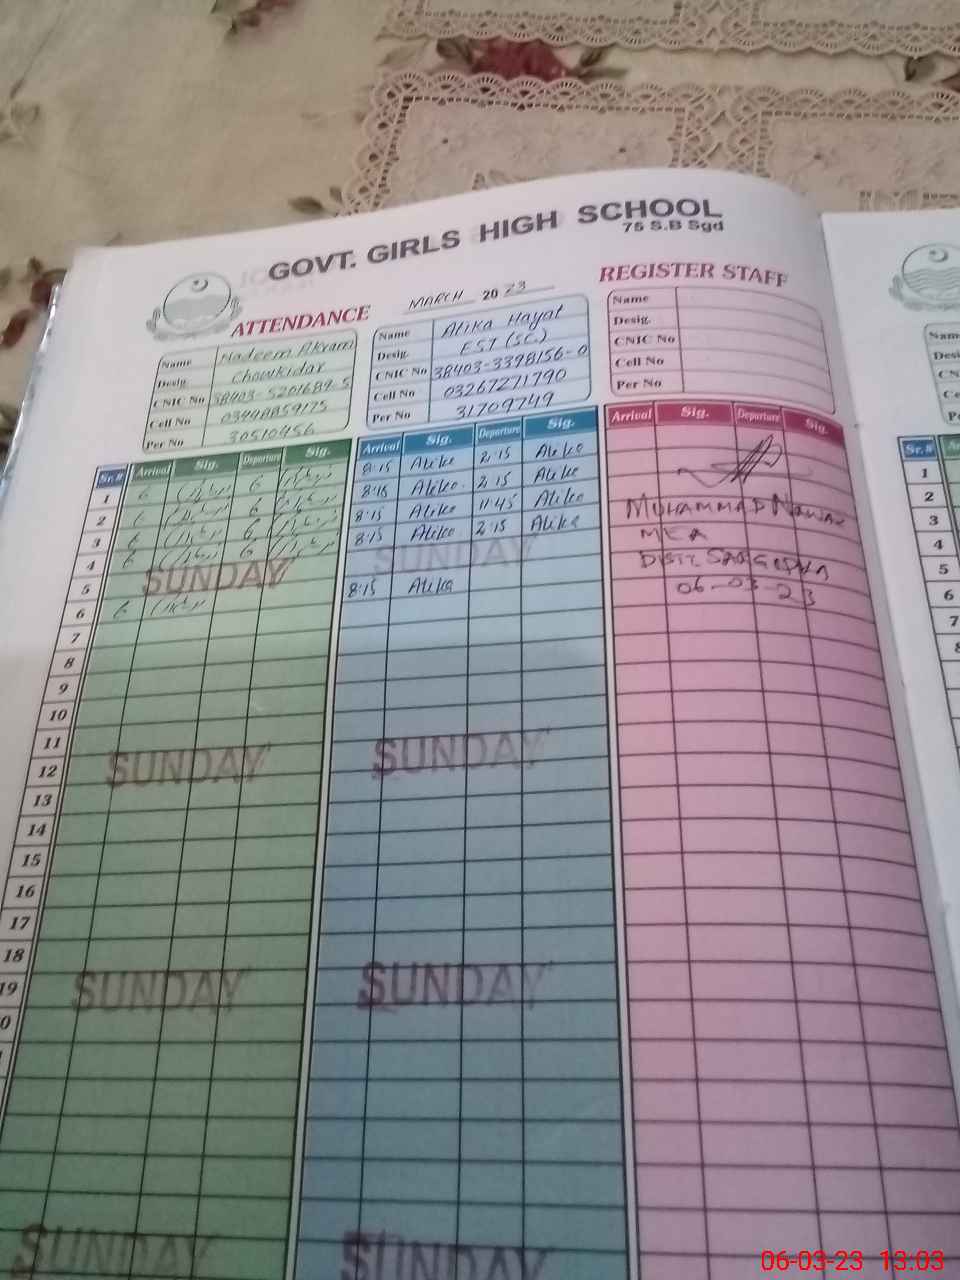 GOVT. GIRLS HIGH SCHOOL
75 S.B Sgd
ATTENDANCE MARCH 2023 REGISTER STAFF
Name Nadeem Akram
Desig. Chowkidar
CNIC No 38403-5201689-5
Cell No
Per No 30510456
Name Atika Hayat
Desig. EST (SC.)
CNIC No 38403-3398156-0
Cell No 03267271790
Per No 31709749
Name
Desig.
CNIC No
Cell No
Per No
Sr.# Arrival Sig. Departure Sig. Arrival Sig. Departure Sig. Arrival Sig. Departure Sig.
1 6 6 8:15 Atika 2:15 Atika
2 6 6 8:16 Atika 2:15 Atika
3 6 6 8:15 Atika 11:45 Atika MUHAMMAD NAWAZ
4 6 6 8:15 Atika 2:15 Atika MEA
5 SUNDAY SUNDAY DISTT. SARGODHA
6 6 8:15 Atika 06-03-23
7
8
9
10
11
12 SUNDAY SUNDAY
13
14
15
16
17
18
19 SUNDAY SUNDAY
0
SUNDAY SUNDAY
Sr.#
1
2
3
4
5
6
7
06-03-23 13:03